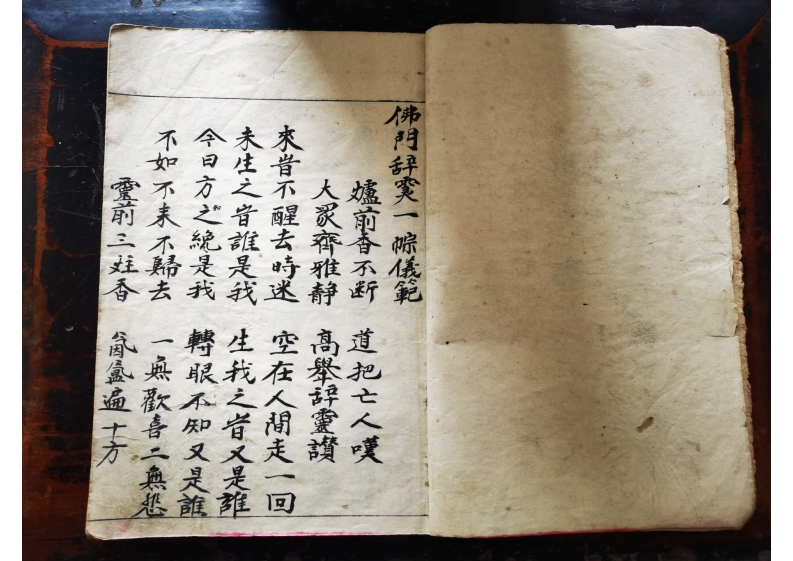 佛門辞霊一宗儀範
爐前香不断　道把亡人嘆
大眾齊雅静　高舉辞靈讃
來昔不醒去時迷　空在人間走一回
未生之昔誰是我　生我之昔又是誰
今日方知之纔是我　轉眼不知又是誰
不如不来不歸去　一無歡喜二無悲
靈前三炷香　氤氲遍十方